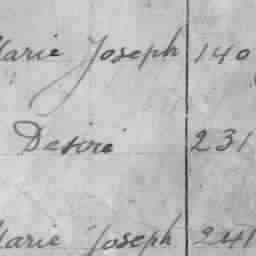 Marie Joseph 140
Desiré 231
Marie Joseph 241